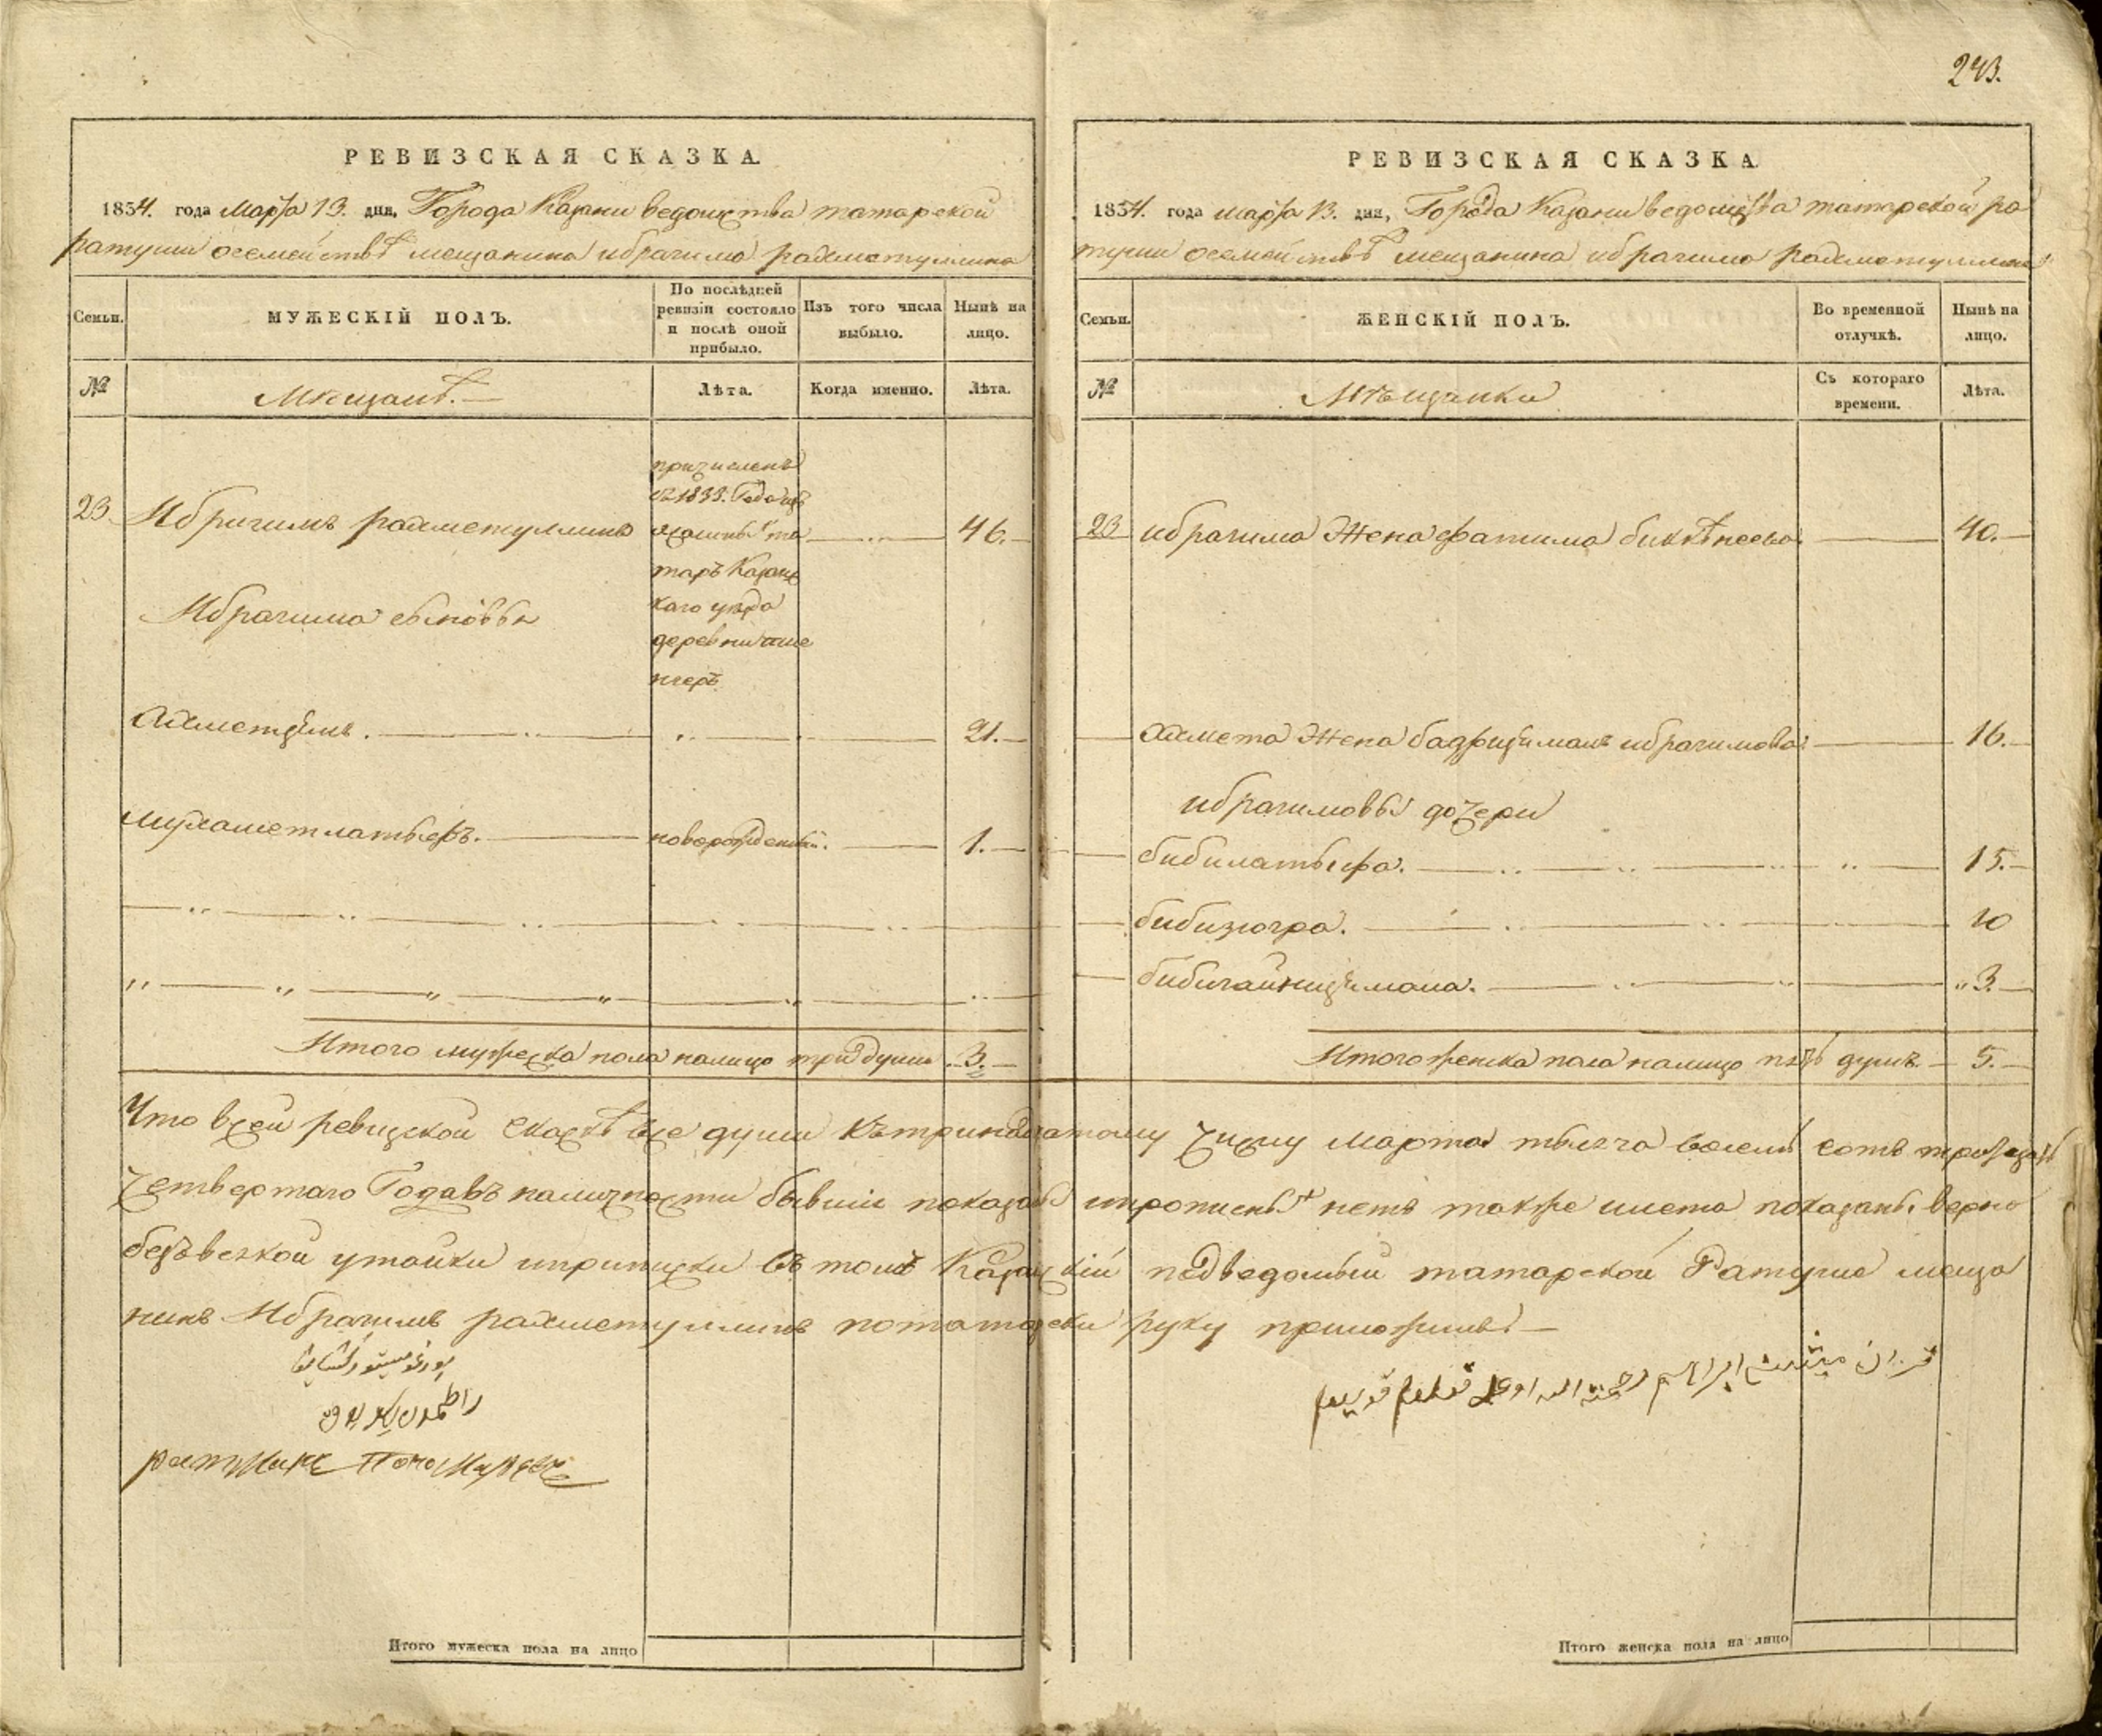 243.
РЕВИЗСКАЯ СКАЗКА.
1834. года Марта 13. дня, Города Казани ведомства татарской
ратуши осемействѣ мещанина ибрагима рахметуллина
Семьи.
МУЖЕСКІЙ ПОЛЪ.
По послѣдней
ревизіи состояло
и послѣ оной
прибыло.
Изъ того числа
выбыло.
Нынѣ на
лицо.
№
Мѣщанѣ.
Лѣта.
Когда именно.
Лѣта.
23
Ибрагимъ рахметуллинъ
причисленъ
съ 1833. Года изъ
татаръ Казанс
каго уезда
деревни
46.
Ибрагима сыновья
Ахметъ
21.
Мухаметлатыфъ.
новорожденный.
1.
Итого мужеска пола налицо три души
3.
РЕВИЗСКАЯ СКАЗКА
1834. года марта 13. дня, Города Казани ведомства татарской ра
туши осемействѣ мещанина ибрагима рахметуллина
Семьи.
ЖЕНСКІЙ ПОЛЪ.
Во временной
отлучкѣ.
Нынѣ на
лицо.
№
Мѣщанки
Съ котораго
времени.
Лѣта.
23
ибрагима Жена фатима
40.
Ахмета Жена ибрагимова
16.
ибрагимовы дочери
бибилатыфа.
15.
бибизюгра.
10
3.
Итого женска пола налицо пять душъ.
5.
Что всей ревизской сказкѣ все души къ тринадцатому числу Марта тысяча восемь сотъ тридцать
четвертаго Года въ наличности бывшіе показаны ипрописныхъ нетъ также илета показаны верно
безъ всякой утайки иприписки въ томъ Казанскій подведомый татарской Ратуше меща
нинъ Ибрагимъ рахметуллинъ потатарски руку приложилъ
Итого мужеска пола на лицо
Итого женска пола на лицо